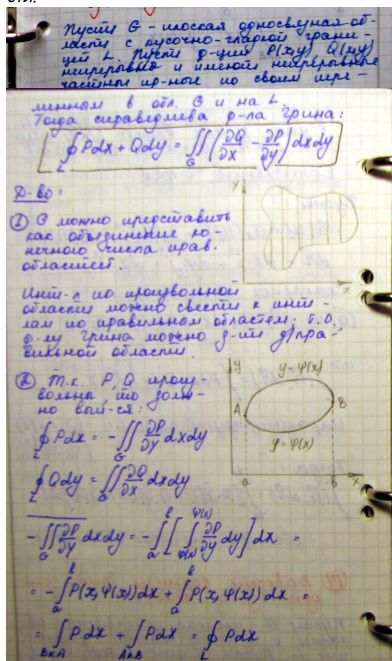 Пусть G - плоская односвязная об-
ласть с кусочно-гладкой грани-
цей L. Пусть ф-ции P(x,y) Q(x,y)
непрерывны и имеют непрерывные
частные пр-ные по своим пере-
менным в обл. G и на L.
Тогда справедлива ф-ла Грина:
∮_L Pdx + Qdy = ∬_G (∂Q/∂x - ∂P/∂y) dxdy
Д-во:
① G можно представить
как объединение ко-
нечного числа прав.
областей.
y
x
Инт-л по произвольной
области можно свести к инте-
лам по правильным областям, т.о.
ф-лу Грина можно д-ть д/пра-
вильной области.
② Т.к. P, Q произ
вольны, то долж-
но вып-ся:
y
y=ψ(x)
A
B
y=φ(x)
a
b
x
∮_L Pdx = -∬_G ∂P/∂y dxdy
∮_L Qdy = ∬_G ∂Q/∂x dxdy
-∬_G ∂P/∂y dxdy = -∫_a^b [∫_{φ(x)}^{ψ(x)} ∂P/∂y dy] dx =
= -∫_a^b P(x,ψ(x))dx + ∫_a^b P(x,φ(x))dx =
= ∫ Pdx + ∫ Pdx = ∮_L Pdx